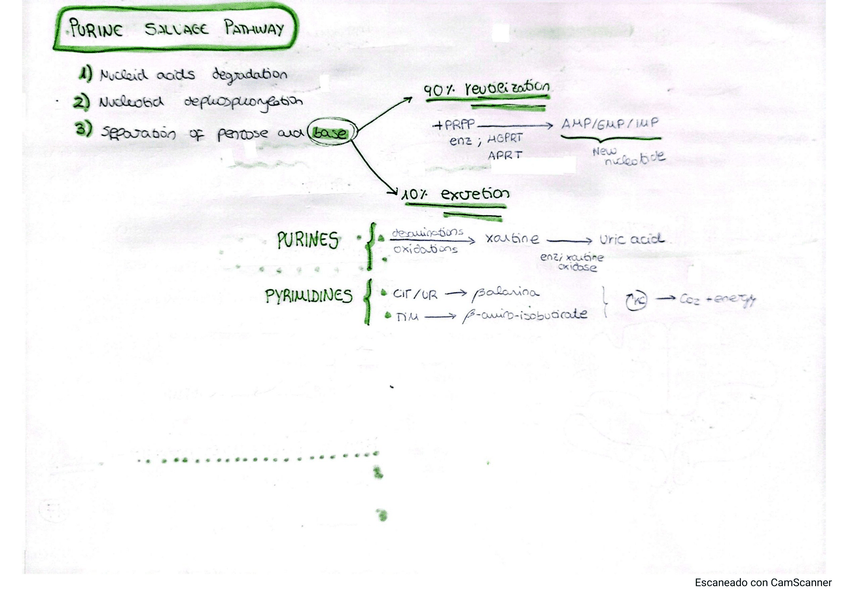 PURINE SALLAGE PATHWAY
1) Nucleid acids degradation
2) Nucleotid dephosphorylation
3) Separation of pentose and base
90% reutilization
+PRPP → AMP/GMP/IMP
enz; HGPRT
APRT
New
nucleotide
10% excretion
PURINES
deaminations
oxidations
xantine → uric acid
enz; xantine
oxidase
PYRIMIDINES
CIT/UR → βalanina
TIM → β-amino-isobutirate
→ CO2 + energy
Escaneado con CamScanner